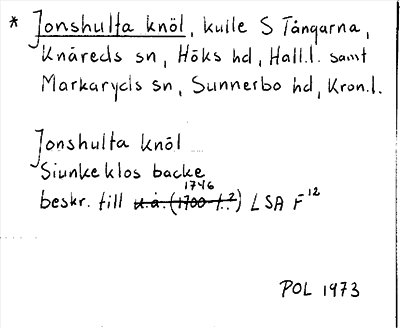 * Jonshulta knöl, kulle S Tångarna,
Knäreds sn, Höks hd, Hall.l. samt
Markaryds sn, Sunnerbo hd, Kron.l.
Jonshulta knöl
Siunkeklos backe
1746
beskr. till u.å. (1700-t.?) LSA F 12
POL 1973